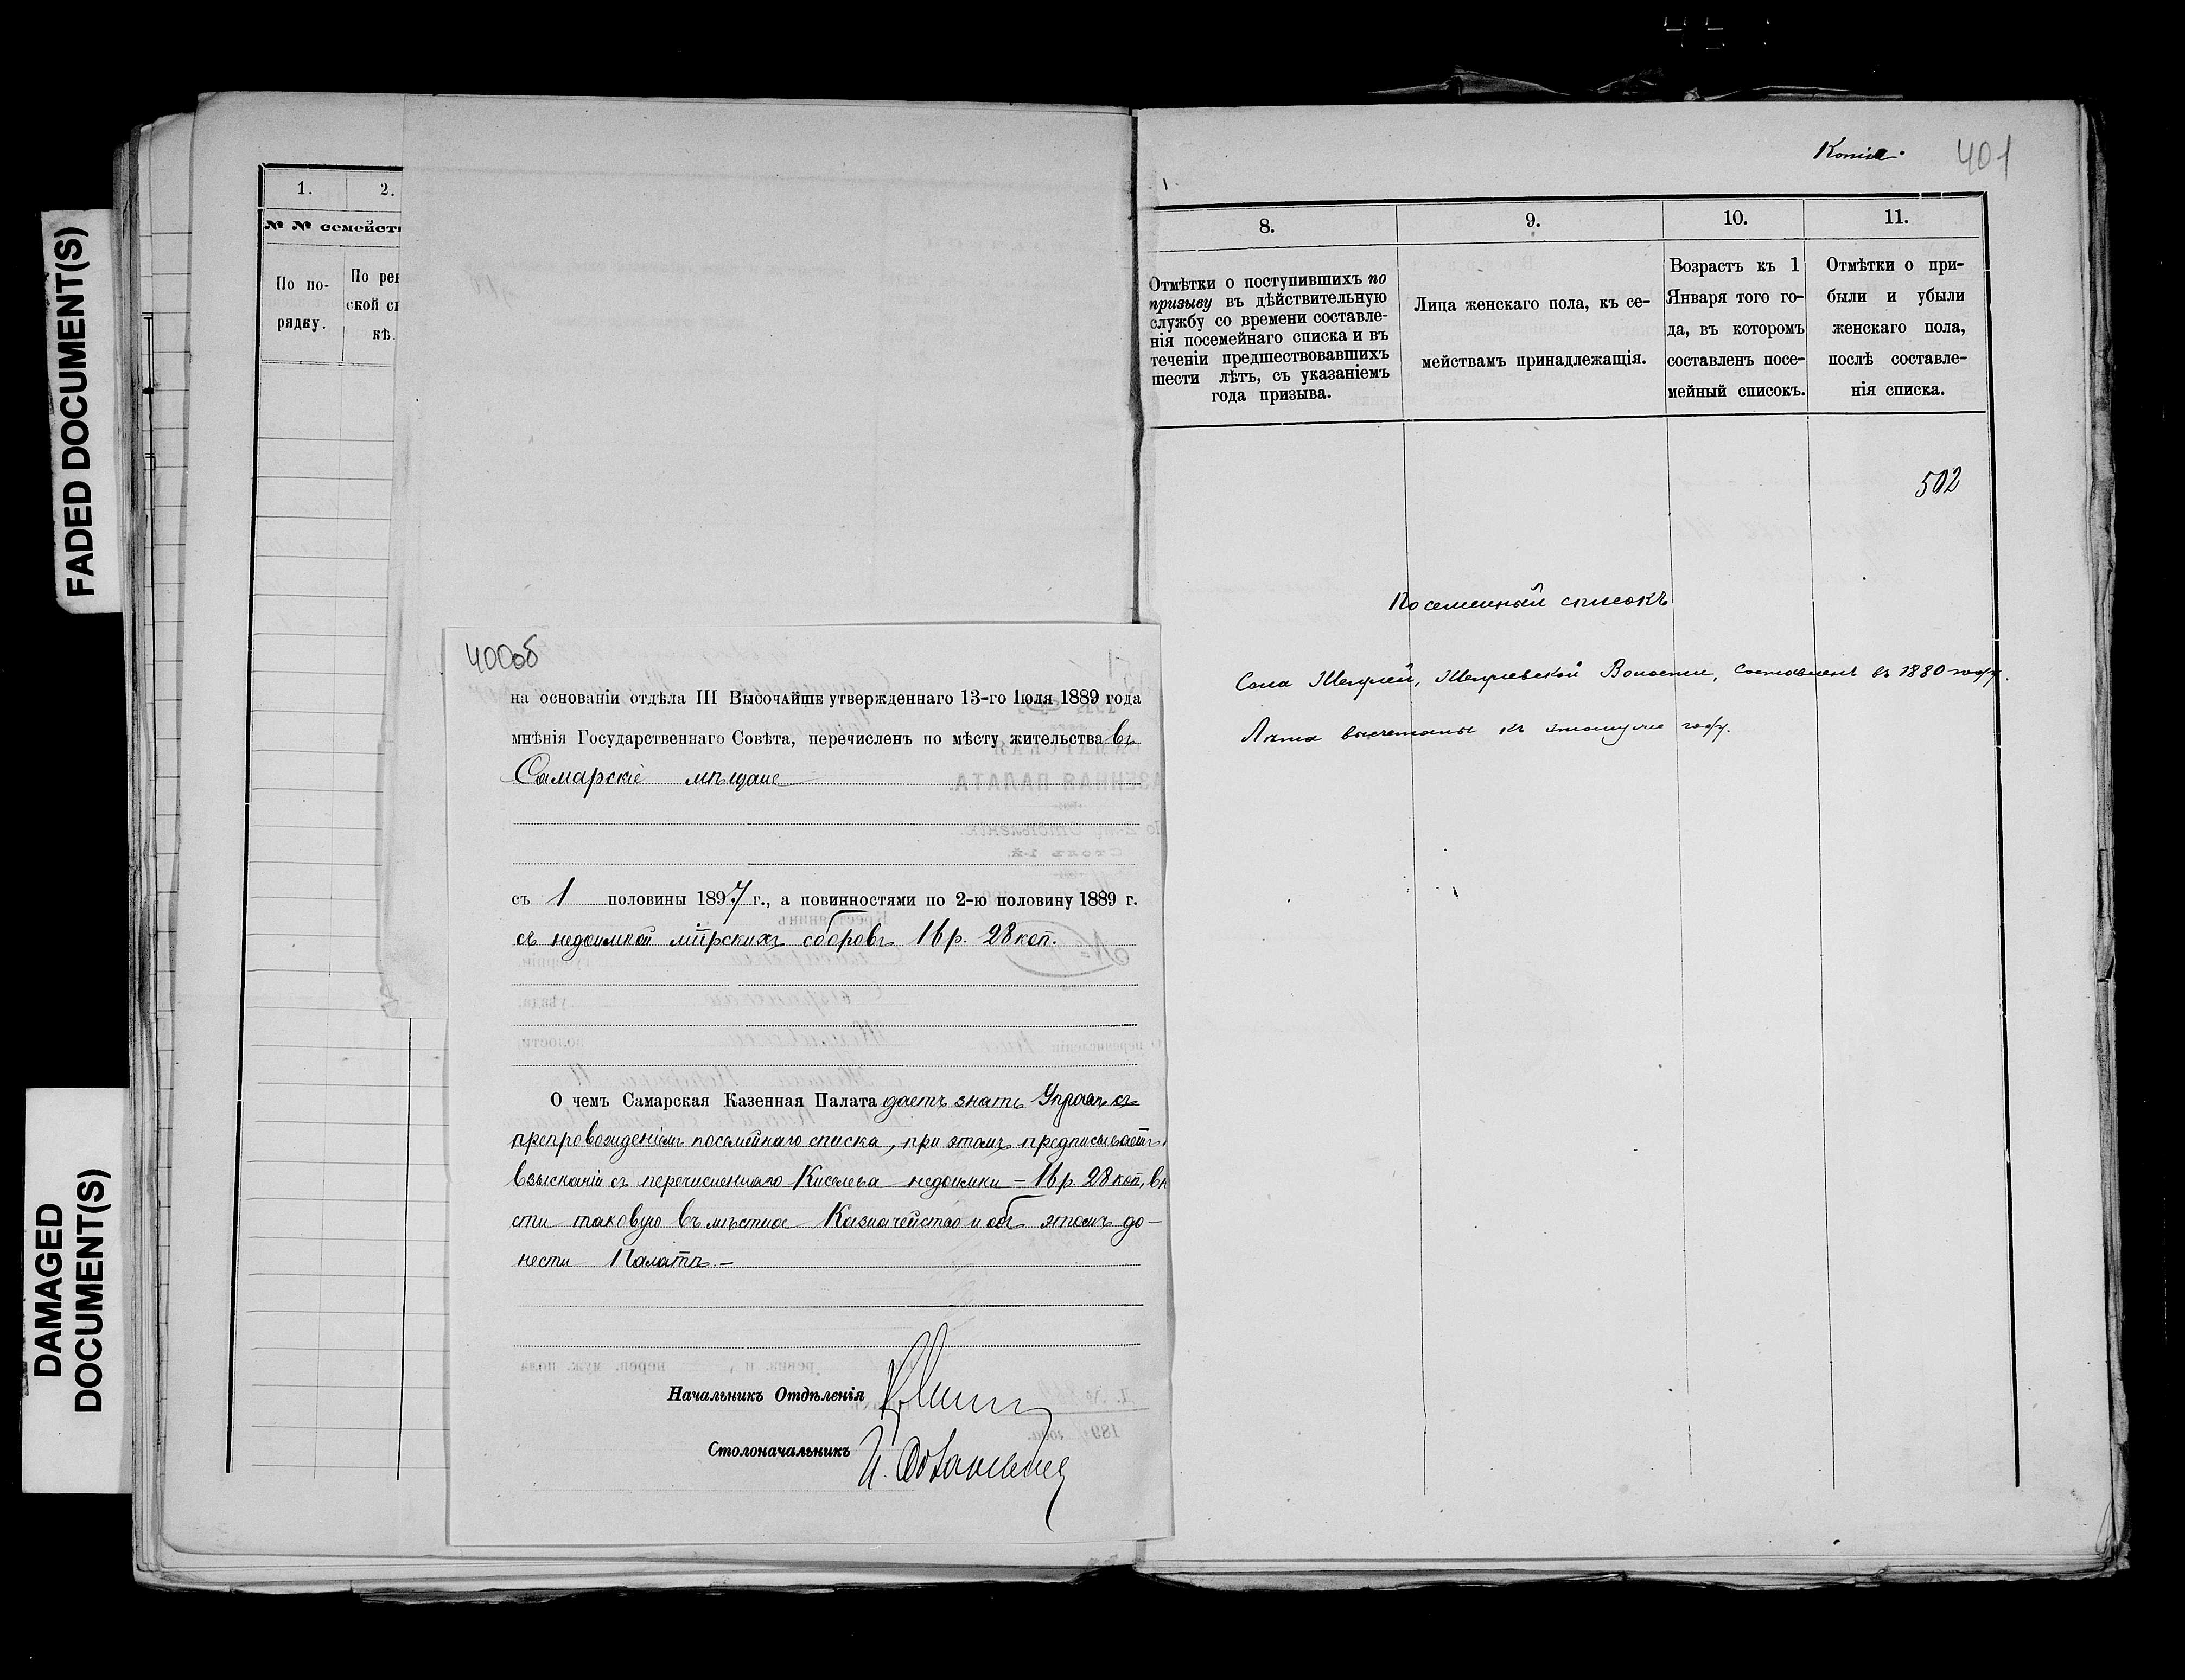 FADED DOCUMENT(S)
DAMAGED
DOCUMENT(S)
1.
2.
№ № семейст
По по-
рядку.
По ре
ской с
кѣ.
400об
на основаніи отдѣла III Высочайше утвержденнаго 13-го Іюля 1889 года
мнѣнія Государственнаго Совѣта, перечисленъ по мѣсту жительства въ
Самарскіе мѣщане
съ 1 половины 1897 г., а повинностями по 2-ю половину 1889 г.
съ недоимкой мірскихъ сборовъ 16 р. 28 коп.
О чемъ Самарская Казенная Палата даетъ знать Управѣ съ
препровожденіемъ посемейнаго списка, при этомъ предписываетъ
взысканіи съ перечисленнаго Киселева недоимки – 16 р. 28 коп, вн
сти таковую въ мѣстное Казначейство и объ этомъ до-
нести Палатѣ. –
Начальникъ Отдѣленія
Столоначальникъ
Копія.
401
8.
9.
10.
11.
Отмѣтки о поступившихъ по
призыву въ дѣйствительную
службу со времени составле-
нія посемейнаго списка и въ
теченіи предшествовавшихъ
шести лѣтъ, съ указаніемъ
года призыва.
Лица женскаго пола, къ се-
мействамъ принадлежащія.
Возрастъ къ 1
Января того го-
да, въ которомъ
составленъ посе-
мейный списокъ.
Отмѣтки о при-
были и убыли
женскаго пола,
послѣ составле-
нія списка.
502
Посемейный списокъ
Села Жегулей, Жегулевской Волости, составленъ въ 1880 году.
Лѣта высчетаны къ этому же году.